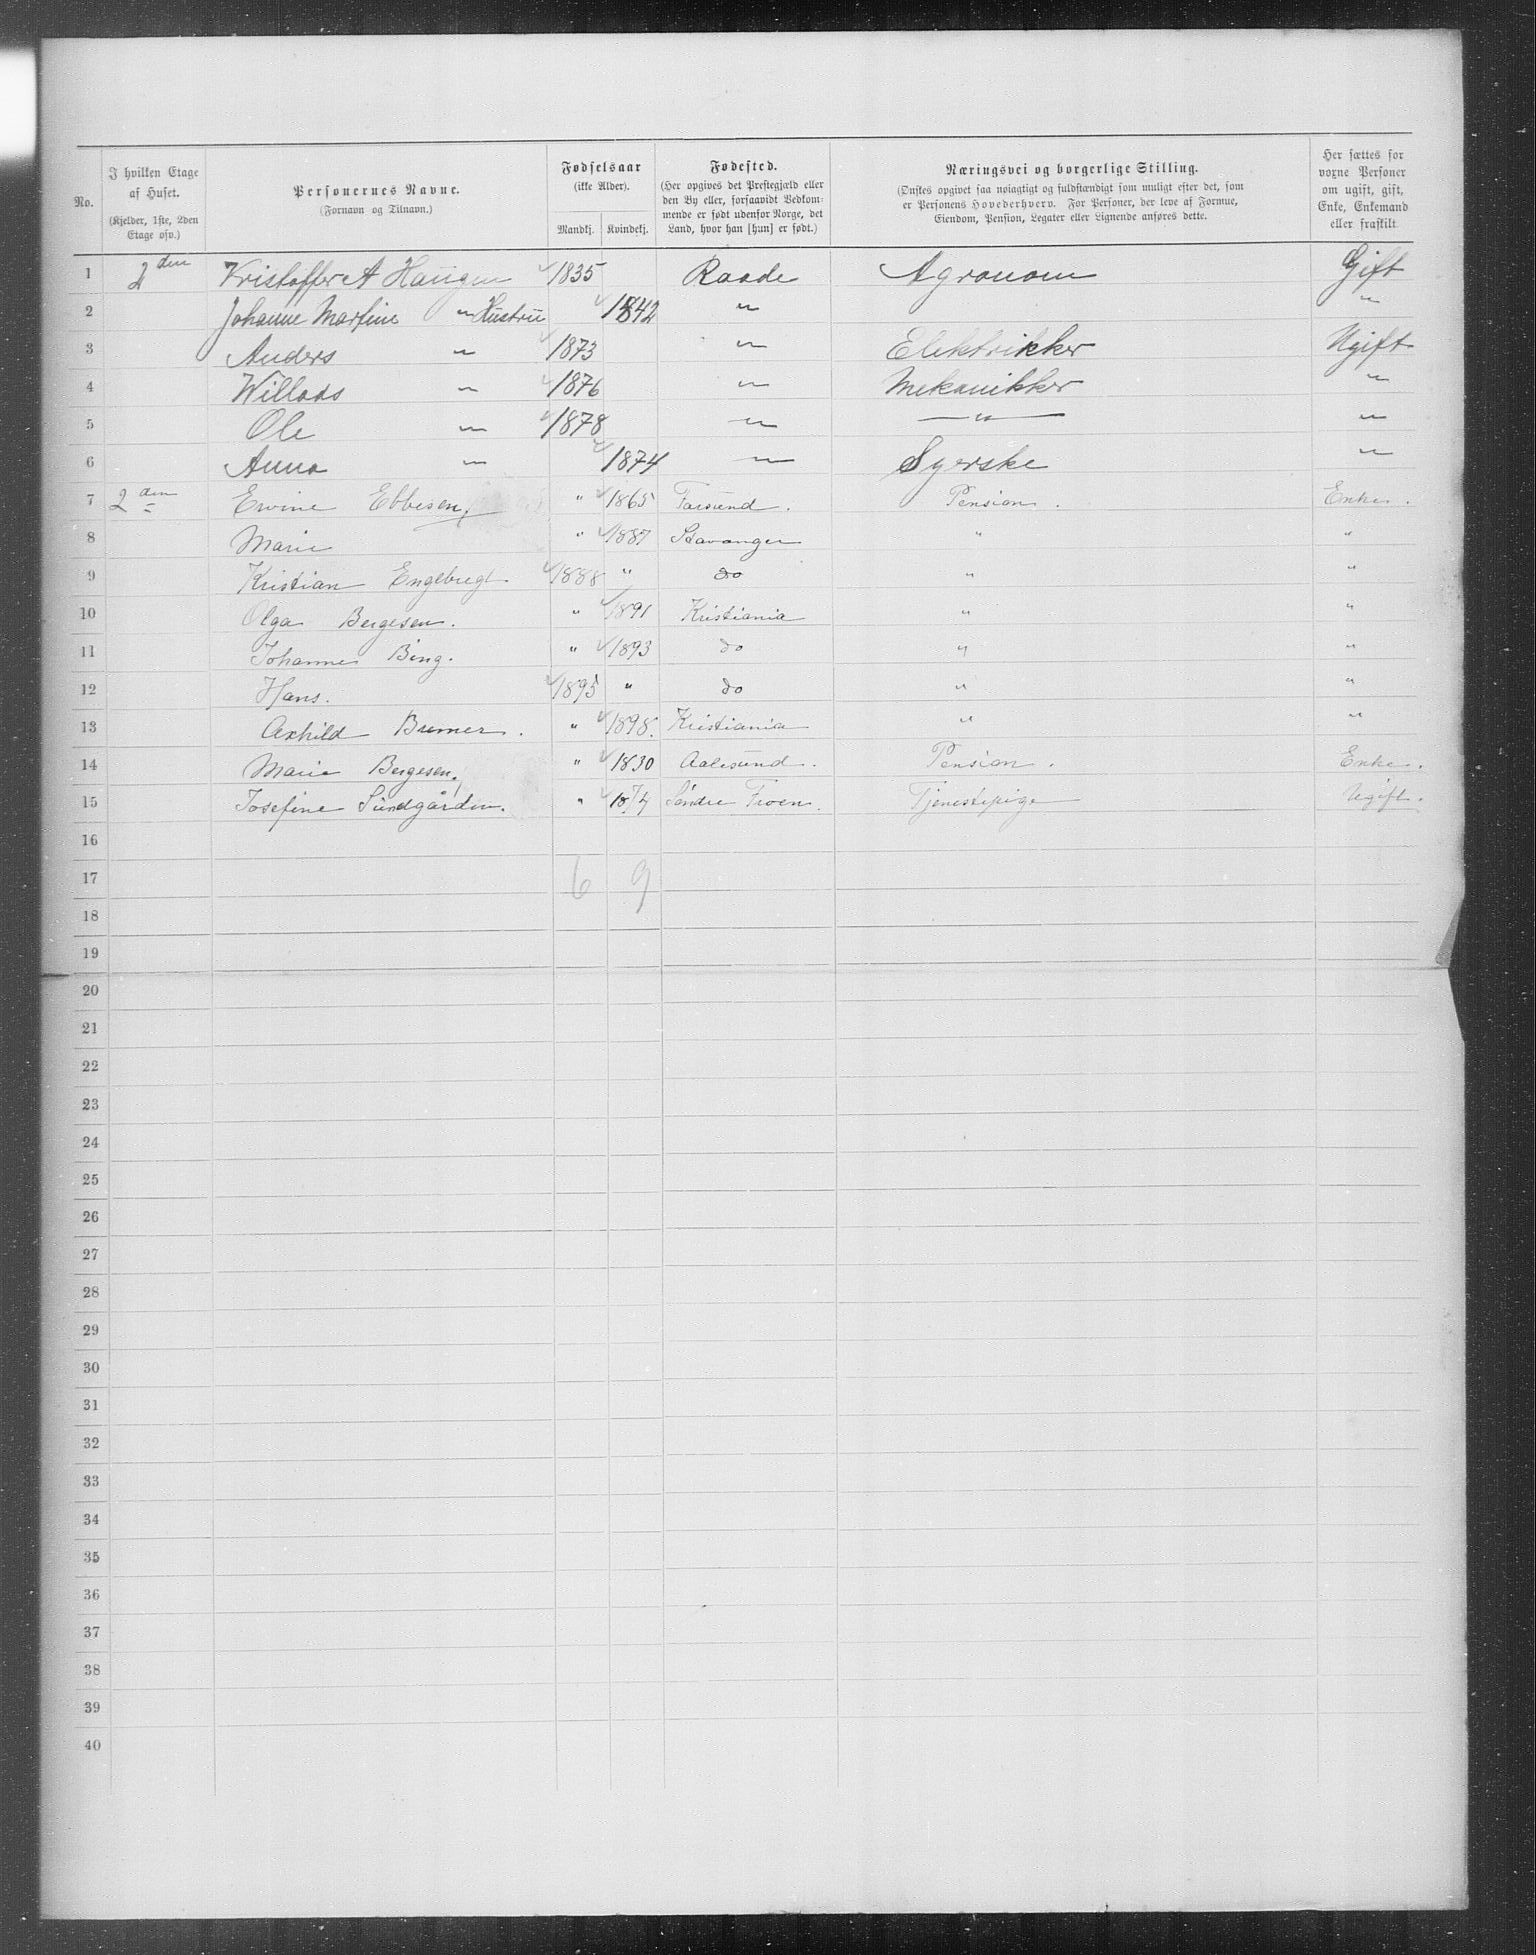 No. | I hvilken Etage af Huset. (Kjelder, 1ste, 2den Etage osv.) | Personernes Navne. (Fornavn og Tilnavn.) | Fødselsaar (ikke Alder). Mandkj. | Kvindekj. | Fødested. (Her opgives det Prestegjæld eller den By eller, forsaavidt Vedkommende er født udenfor Norge, det Land, hvor han [hun] er født.) | Næringsvei og borgerlige Stilling. (Ønskes opgivet saa nøiagtigt og fuldstændigt som muligt efter det, som er Personens Hovederhverv. For Personer, der leve af Formue, Eiendom, Pension, Legater eller Lignende anføres dette. | Her sættes for voxne Personer om ugift, gift, Enke, Enkemand eller fraskilt
1 | 2den | Kristoffer A Haugen | 1835 | | Raade | Agronom | Gift
2 | | Johanne Martine " Hustru | | 1842 | " | | "
3 | | Anders " | 1873 | | " | Elektrikker | Ugift
4 | | Willads " | 1876 | | " | Mekanikker | "
5 | | Ole " | 1878 | | " | " | "
6 | | Anna " | | 1874 | " | Syerske | "
7 | 2den | Ervine Ebbesen, | " | 1865 | Farsund. | Pension. | Enke.
8 | | Marie | " | 1887 | Stavanger | " | "
9 | | Kristian Engebregt | 1888 | " | do | " | "
10 | | Olga Bergesen. | " | 1891 | Kristiania | " | "
11 | | Johannes Bing. | " | 1893 | do | " | "
12 | | Hans. | 1895 | " | do | " | "
13 | | Axhild Bremer. | " | 1898. | Kristiania | " | "
14 | | Marie Bergesen, | " | 1830 | Aalesund. | Pension. | Enke.
15 | | Josefine Sundgården. | " | 1874 | Søndre Froen. | Tjenestepige | Ugift.
16
17 | | | 6 | 9
18
19
20
21
22
23
24
25
26
27
28
29
30
31
32
33
34
35
36
37
38
39
40